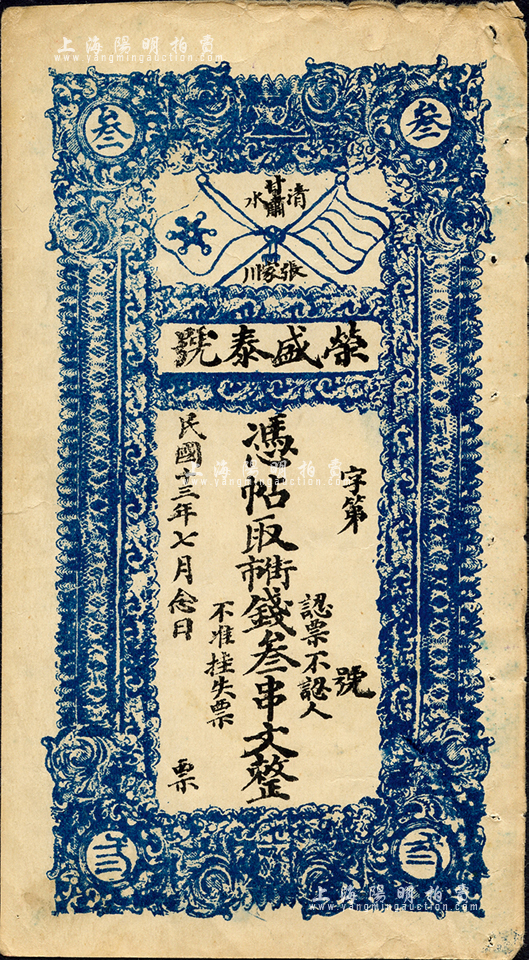 上海陽明拍賣
www.yangmingauction.com
叁
叁
甘肅
清水
張家川
榮盛泰號
字第
號
認票不認人
憑帖取街市錢叁串文整
不准挂失票
民國十三年七月念日
票
上海陽明拍賣
www.yangmingauction.com
上海陽明拍賣
www.yangmingauction.com